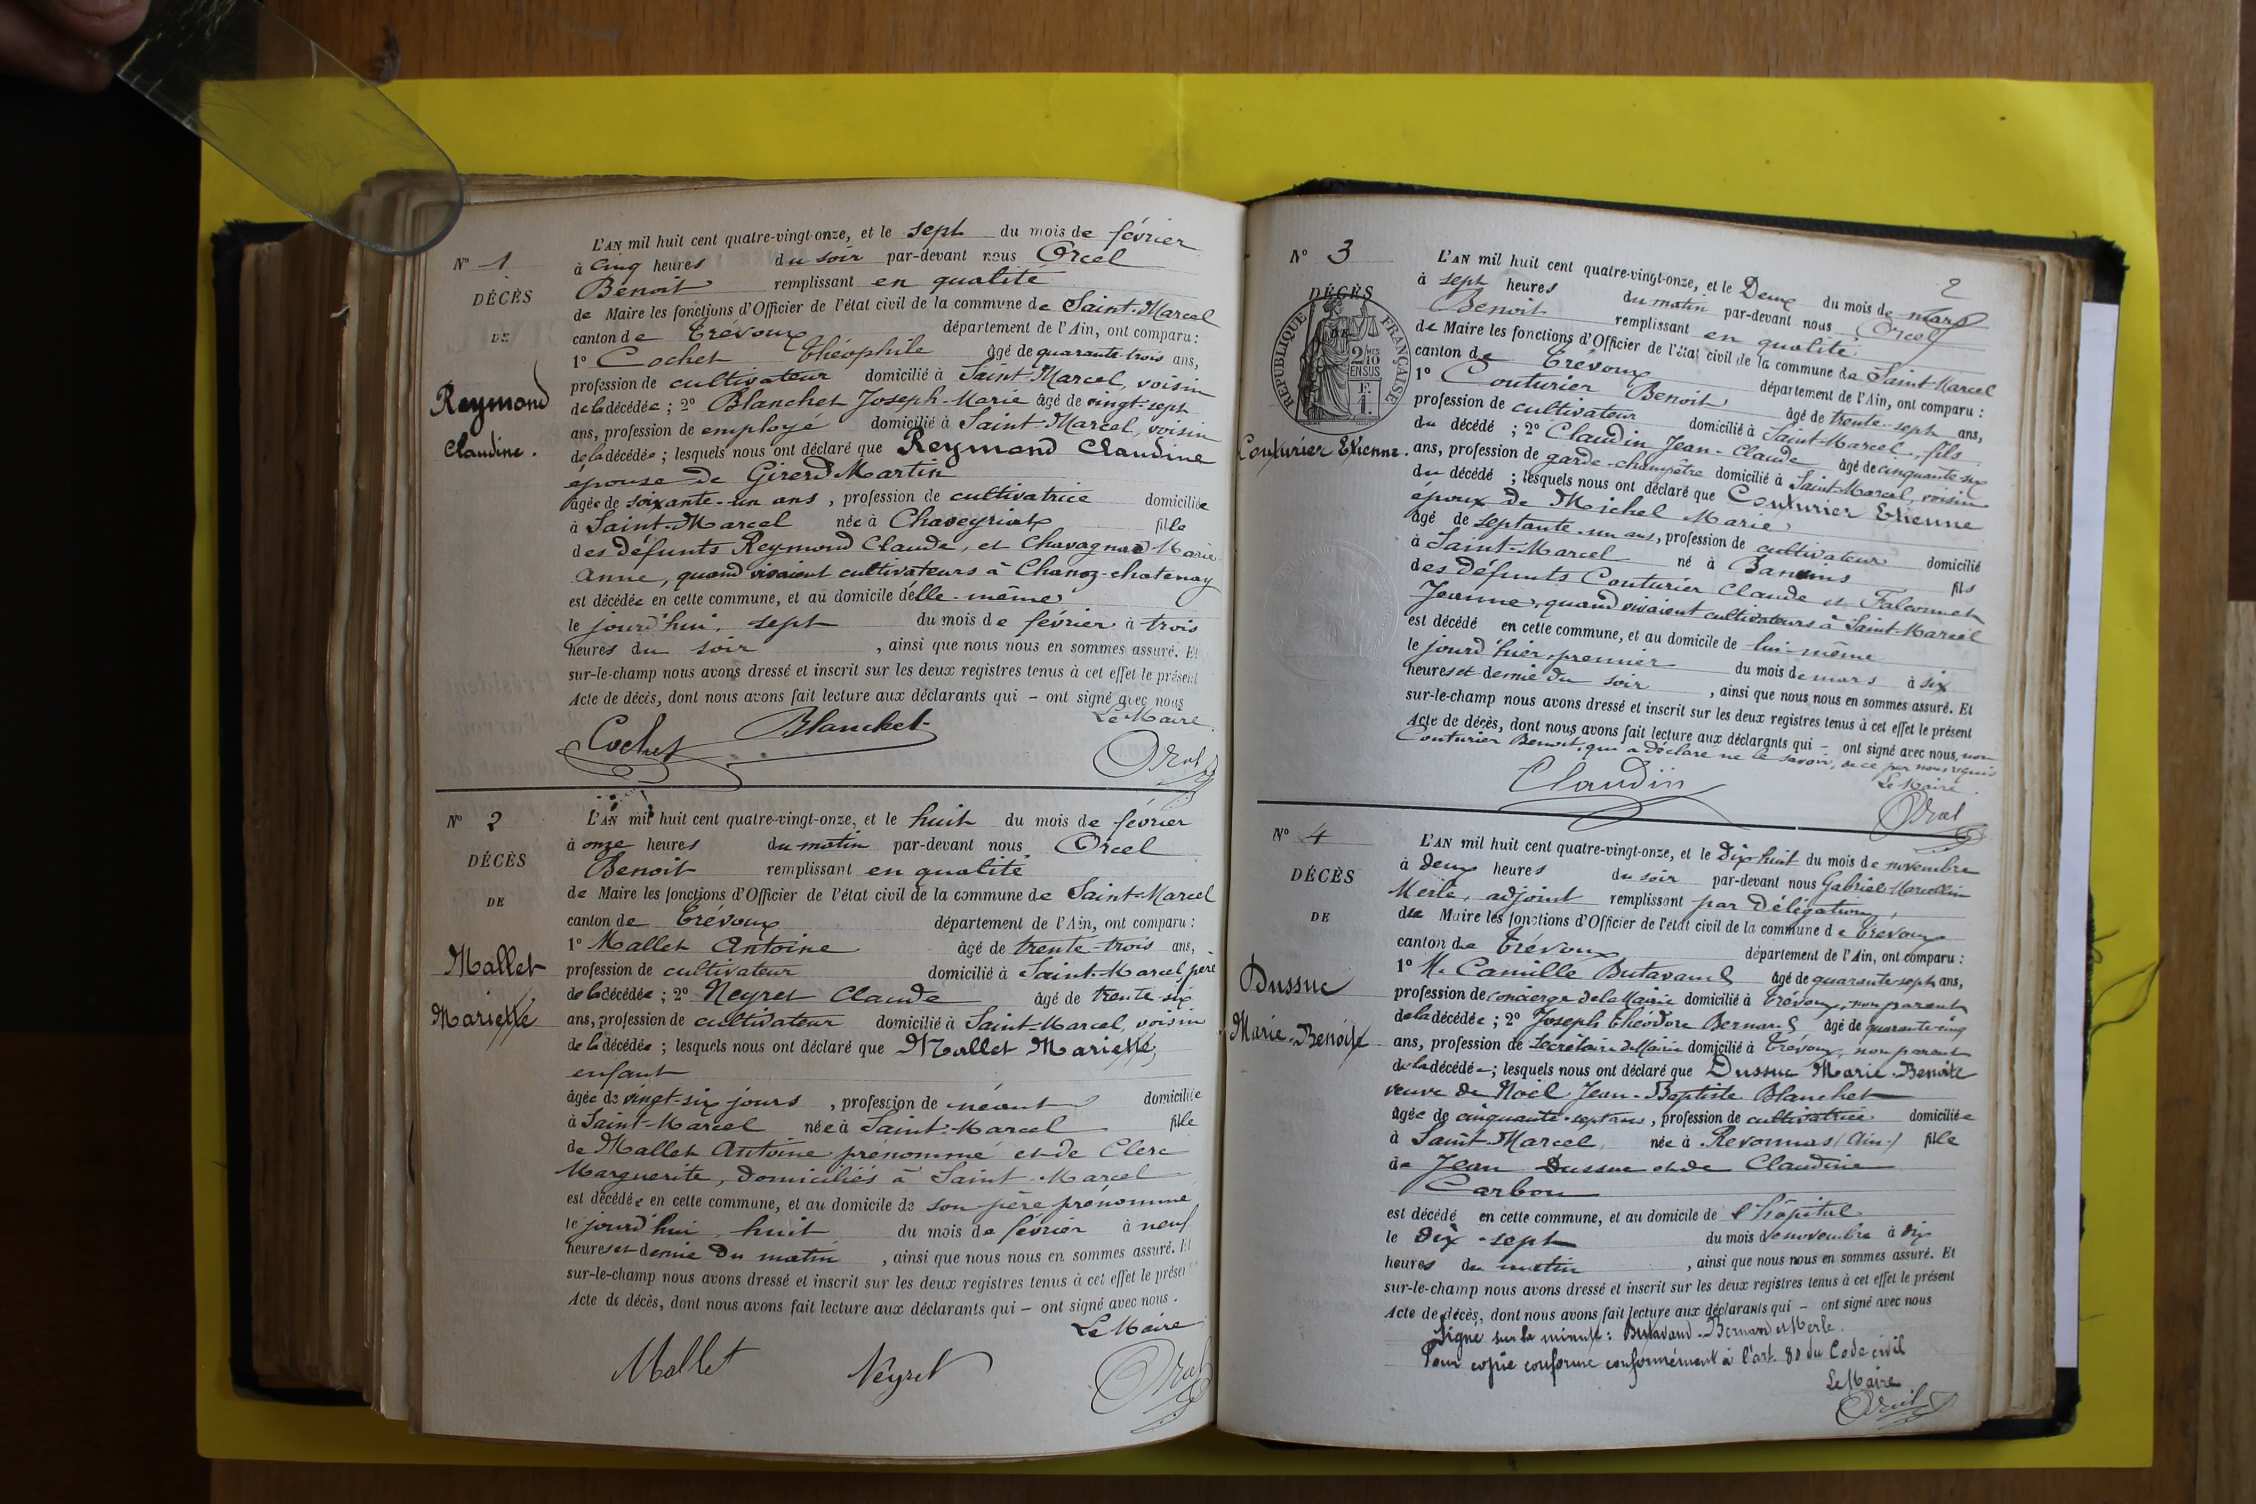 N° 1
DÉCÈS
DE
Reymond
Claudine.
L'AN mil huit cent quatre-vingt-onze, et le sept du mois de février
à cinq heures du soir par-devant nous Orcel
Benoit remplissant en qualité
de Maire les fonctions d'Officier de l'état civil de la commune de Saint-Marcel
canton de Trévoux département de l'Ain, ont comparu :
1° Cochet Théophile âgé de quarante-trois ans,
profession de cultivateur domicilié à Saint-Marcel, voisin
de la décédée ; 2° Blanchet Joseph-Marie âgé de vingt-sept
ans, profession de employé domicilié à Saint-Marcel, voisin
de la décédée ; lesquels nous ont déclaré que Reymond Claudine
épouse de Girerd Martin
âgée de soixante-un ans, profession de cultivatrice domiciliée
à Saint-Marcel née à Chaveyriat fille
des défunts Reymond Claude, et Chavagnad Marie
Anne, quand vivaient cultivateurs à Chanoz-chatenay
est décédée en cette commune, et au domicile d'elle-même
le jourd'hui, sept du mois de février à trois
heures du soir , ainsi que nous nous en sommes assuré. Et
sur-le-champ nous avons dressé et inscrit sur les deux registres tenus à cet effet le présent
Acte de décès, dont nous avons fait lecture aux déclarants qui - ont signé avec nous
Le Maire
Cochet Blanchet
Orcel
N° 2
DÉCÈS
DE
Mallet
Mariette
L'AN mil huit cent quatre-vingt-onze, et le huit du mois de février
à onze heures du matin par-devant nous Orcel
Benoit remplissant en qualité
de Maire les fonctions d'Officier de l'état civil de la commune de Saint-Marcel
canton de Trévoux département de l'Ain, ont comparu :
1° Mallet Antoine âgé de trente-trois ans,
profession de cultivateur domicilié à Saint-Marcel, père
de la décédée ; 2° Neyret Claude âgé de trente-six
ans, profession de cultivateur domicilié à Saint-Marcel, voisin
de la décédée ; lesquels nous ont déclaré que Mallet Mariette,
enfant
âgée de vingt-six jours , profession de néant domiciliée
à Saint-Marcel née à Saint-Marcel fille
de Mallet Antoine prénommé et de Clerc
Marguerite, domiciliés à Saint-Marcel
est décédée en cette commune, et au domicile de son père prénommé
le jourd'hui, huit du mois de février à neuf
heures et demie du matin , ainsi que nous nous en sommes assuré. Et
sur-le-champ nous avons dressé et inscrit sur les deux registres tenus à cet effet le présent
Acte de décès, dont nous avons fait lecture aux déclarants qui - ont signé avec nous.
Le Maire
Mallet Neyret
Orcel
2
N° 3
DÉCÈS
DE
RÉPUBLIQUE FRANÇAISE
2/10 EN SUS
Couturier Etienne.
L'AN mil huit cent quatre-vingt-onze, et le Deux du mois de mars
à sept heures du matin par-devant nous Orcel
Benoit remplissant en qualité
de Maire les fonctions d'Officier de l'état civil de la commune de Saint-Marcel
canton de Trévoux département de l'Ain, ont comparu :
1° Couturier Benoit âgé de trente-sept ans,
profession de cultivateur domicilié à Saint-Marcel, fils
du décédé ; 2° Claudin Jean-Claude âgé de cinquante-six
ans, profession de garde-champêtre domicilié à Saint-Marcel, voisin
du décédé ; lesquels nous ont déclaré que Couturier Etienne
époux de Michel Marie
âgé de septante-un ans, profession de cultivateur domicilié
à Saint-Marcel né à Baneins fils
des défunts Couturier Claude et Falconnet
Jeanne, quand vivaient cultivateurs à Saint-Marcel
est décédé en cette commune, et au domicile de lui-même
le jourd'hier, premier du mois de mars à six
heures et demie du soir , ainsi que nous nous en sommes assuré. Et
sur-le-champ nous avons dressé et inscrit sur les deux registres tenus à cet effet le présent
Acte de décès, dont nous avons fait lecture aux déclarants qui - ont signé avec nous, non
Couturier Benoit, qui a déclaré ne le savoir, de ce par nous requis
Le Maire.
Claudin
Orcel
N° 4
DÉCÈS
DE
Dussuc
Marie-Benoîte
L'AN mil huit cent quatre-vingt-onze, et le Dix huit du mois de novembre
à deux heures du soir par-devant nous Gabriel-Marcellin
Merle, adjoint remplissant par délégation,
du Maire les fonctions d'Officier de l'état civil de la commune de Trévoux
canton de Trévoux département de l'Ain, ont comparu :
1° M. Camille Butavand âgé de quarante sept ans,
profession de concierge de la Mairie domicilié à Trévoux, non parent
de la décédée ; 2° Joseph Théodore Bernard âgé de quarante-cinq
ans, profession de Secrétaire de Mairie domicilié à Trévoux, non parent
de la décédée ; lesquels nous ont déclaré que Dussuc Marie-Benoîte
veuve de Noël Jean-Baptiste Blanchet
âgée de cinquante-sept ans, profession de cultivatrice domiciliée
à Saint-Marcel, née à Revonnas (Ain) fille
de Jean Dussuc et de Claudine
Carbon
est décédé en cette commune, et au domicile de l'hôpital
le dix-sept du mois de novembre à dix
heures du matin , ainsi que nous nous en sommes assuré. Et
sur-le-champ nous avons dressé et inscrit sur les deux registres tenus à cet effet le présent
Acte de décès, dont nous avons fait lecture aux déclarants qui - ont signé avec nous
Signé sur la minute : Butavand - Bernard et Merle.
Pour copie conforme conformément à l'art. 80 du Code civil
Le Maire
Orcel